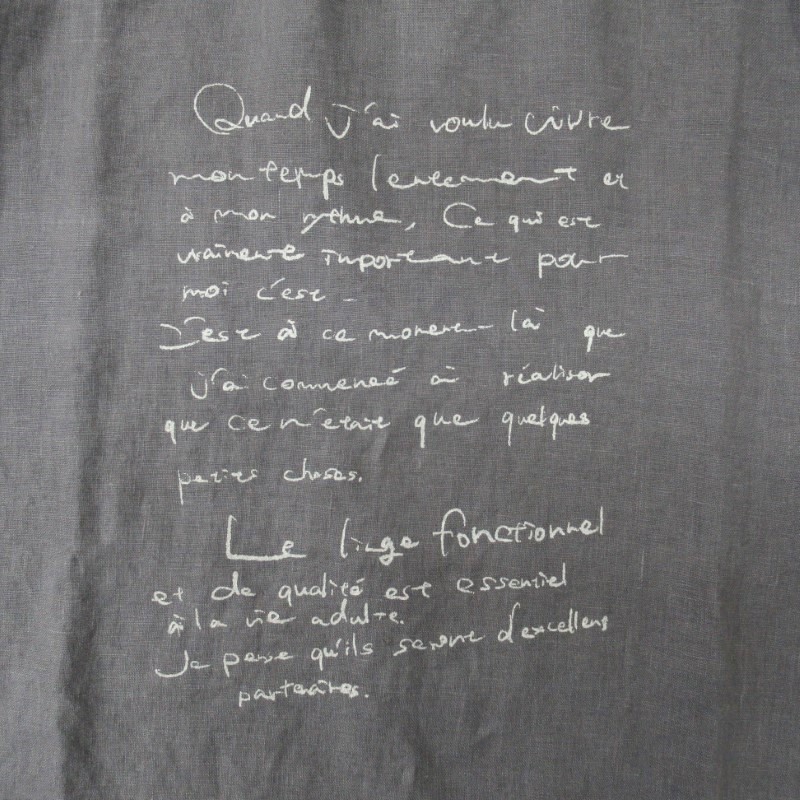 Quand j'ai voulu vivre
mon temps lentement et
à mon rythme, Ce qui est
vraiment important pour
moi c'est -
C'est à ce moment là que
j'ai commencé à réaliser
que ce n'était que quelques
petites choses.
Le linge fonctionnel
et de qualité est essentiel
à la vie adulte.
Je pense qu'ils seront d'excellents
partenaires.